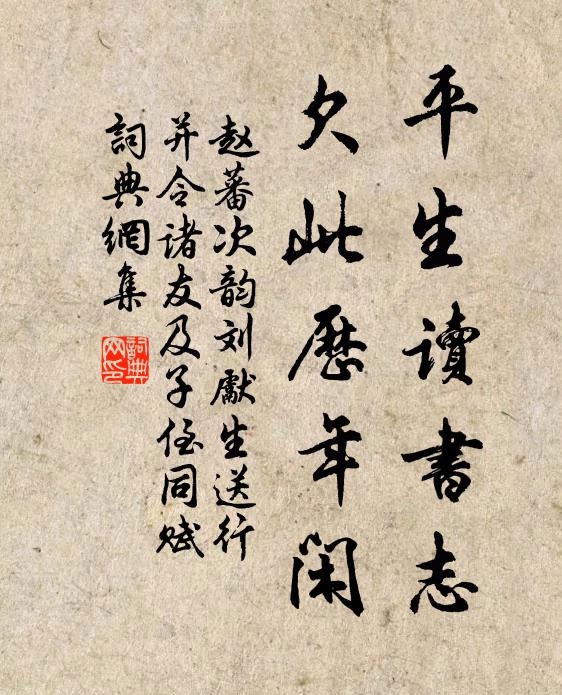 平生讀書志
欠此歷年閑
赵蕃次韵刘獻生送行
并令诸友及子侄同赋
詞典網集
詞典
网印